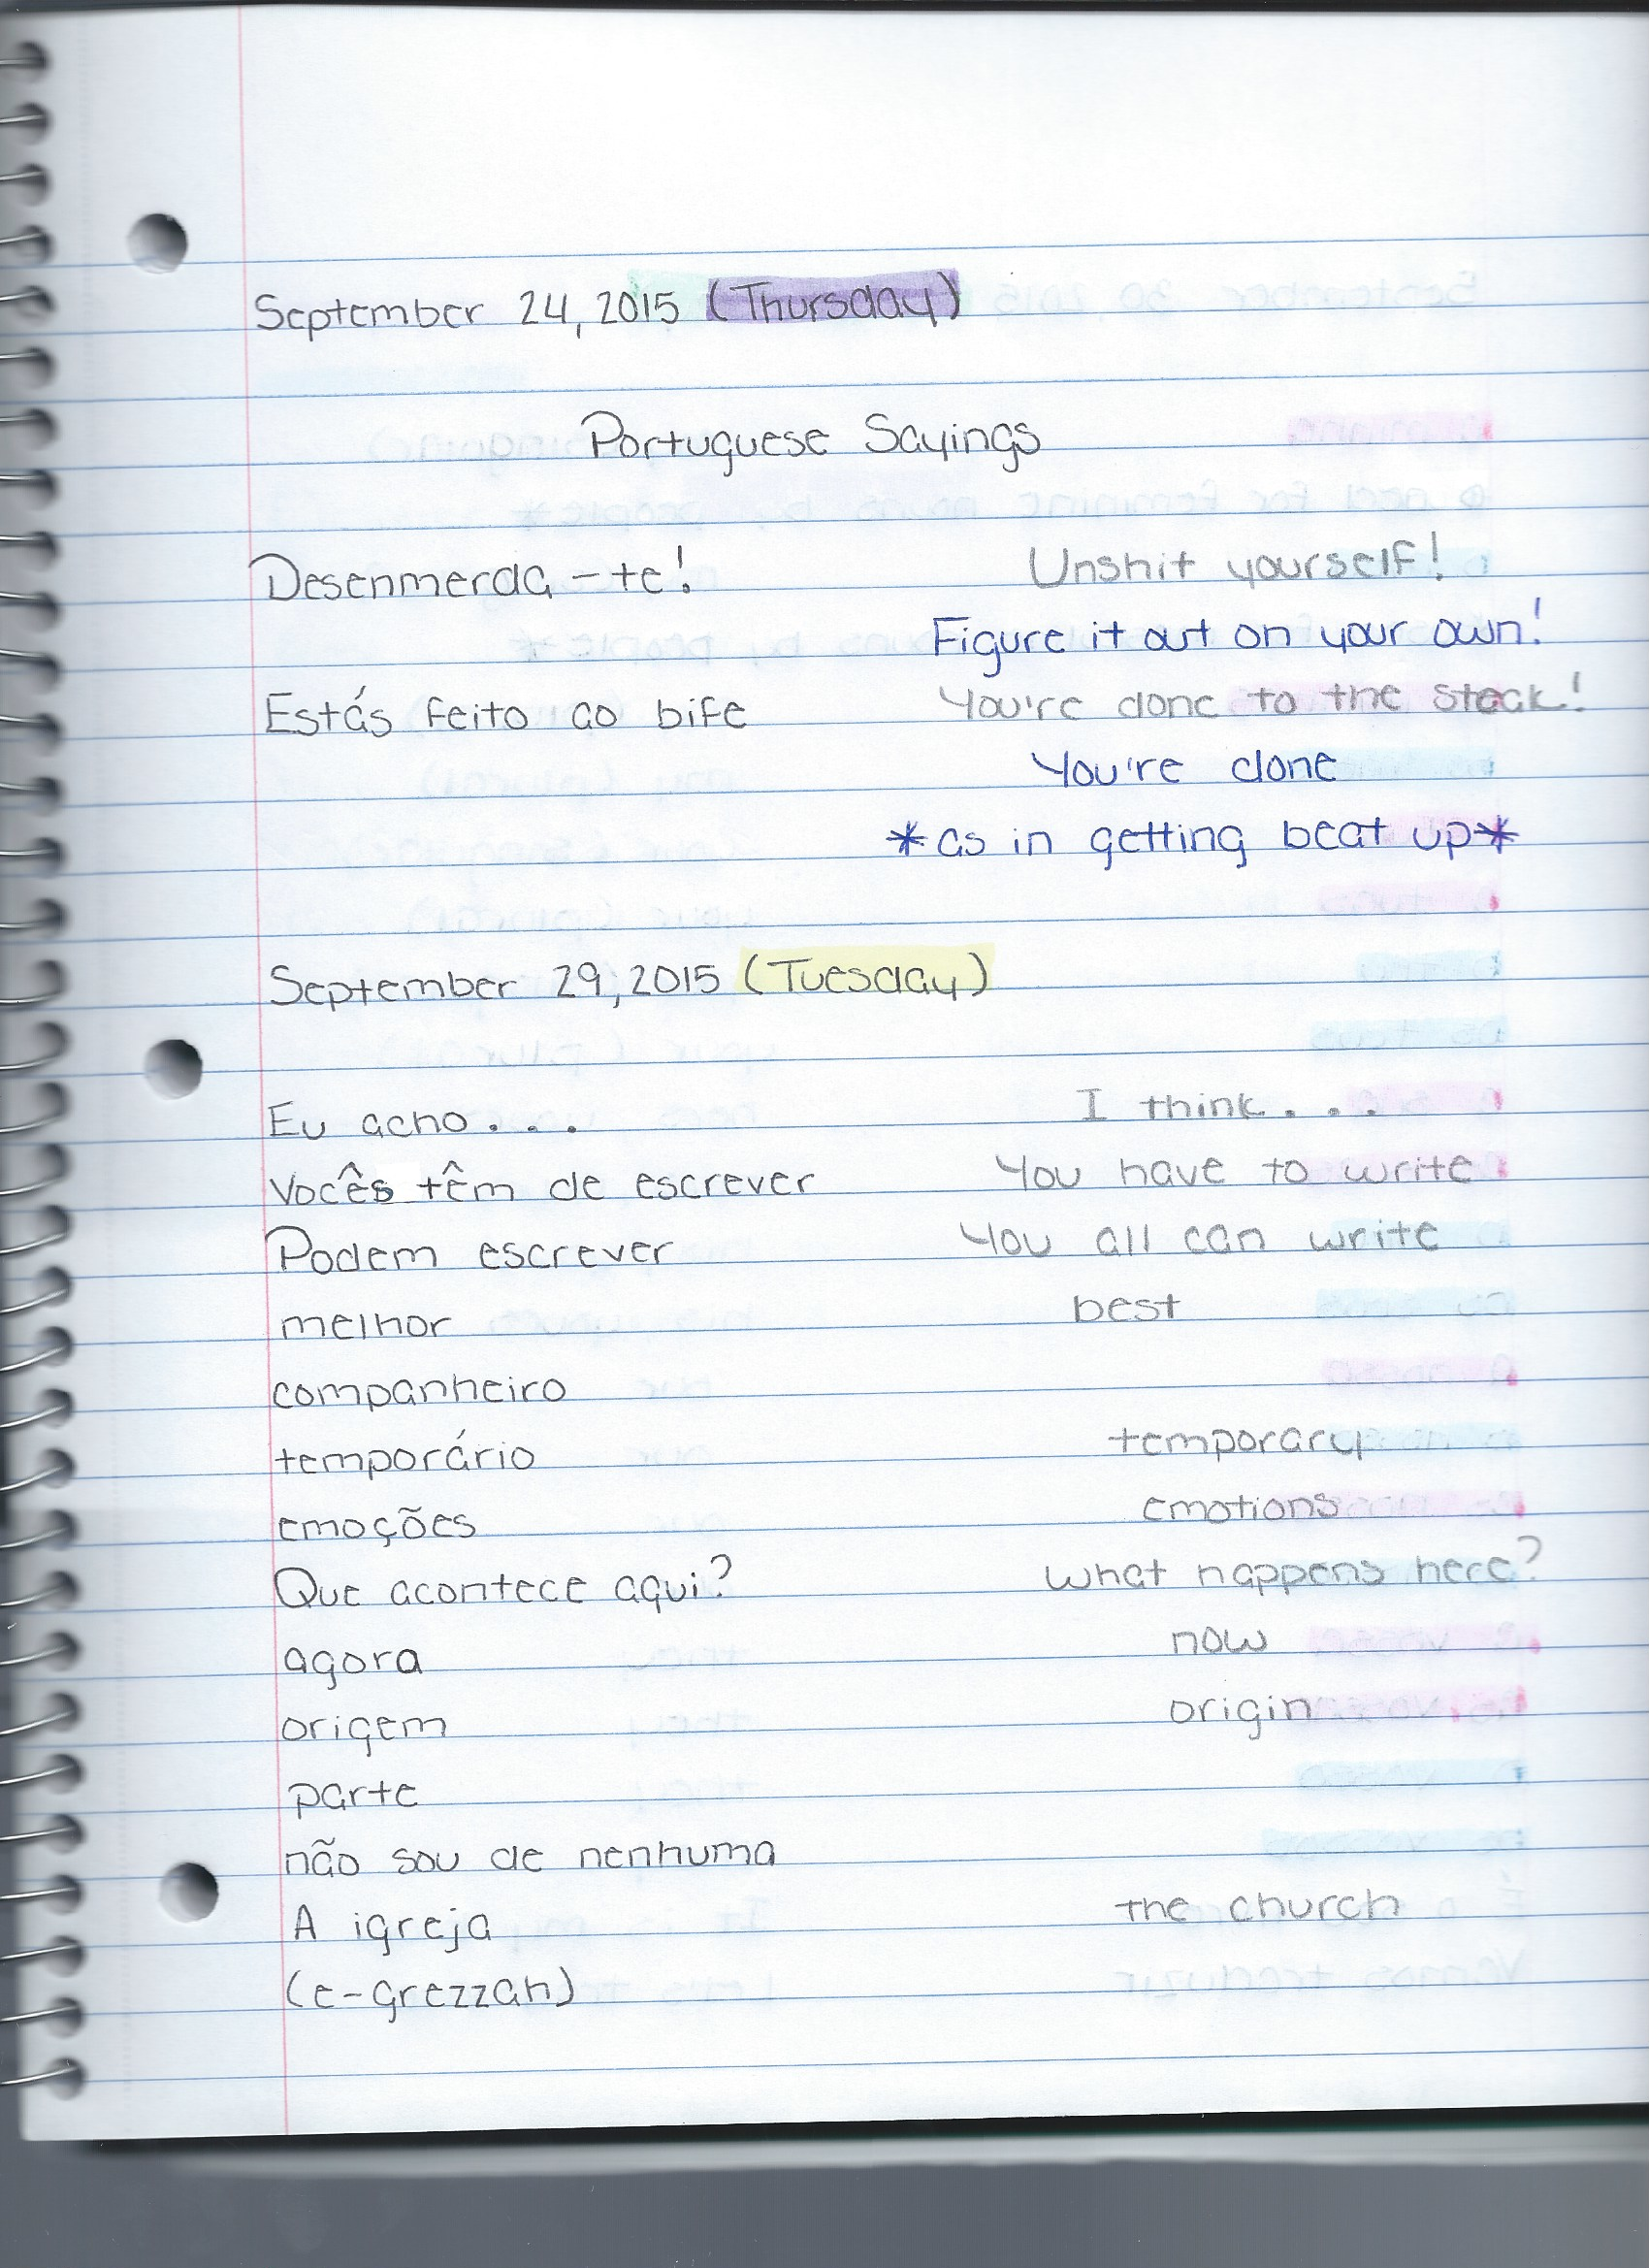 September 24, 2015 (Thursday)
Portuguese Sayings
Desenmerda-te! Unshit yourself!
Figure it out on your own!
Estás feito ao bife You're done to the steak!
You're done
*as in getting beat up*
September 29, 2015 (Tuesday)
Eu acho... I think...
Vocês têm de escrever You have to write
Podem escrever You all can write
melhor best
companheiro
temporário temporary
emoções emotions
Que acontece aqui? What happens here?
agora now
origem origin
parte
não sou de nenhuma
A igreja the church
(e-grezzah)